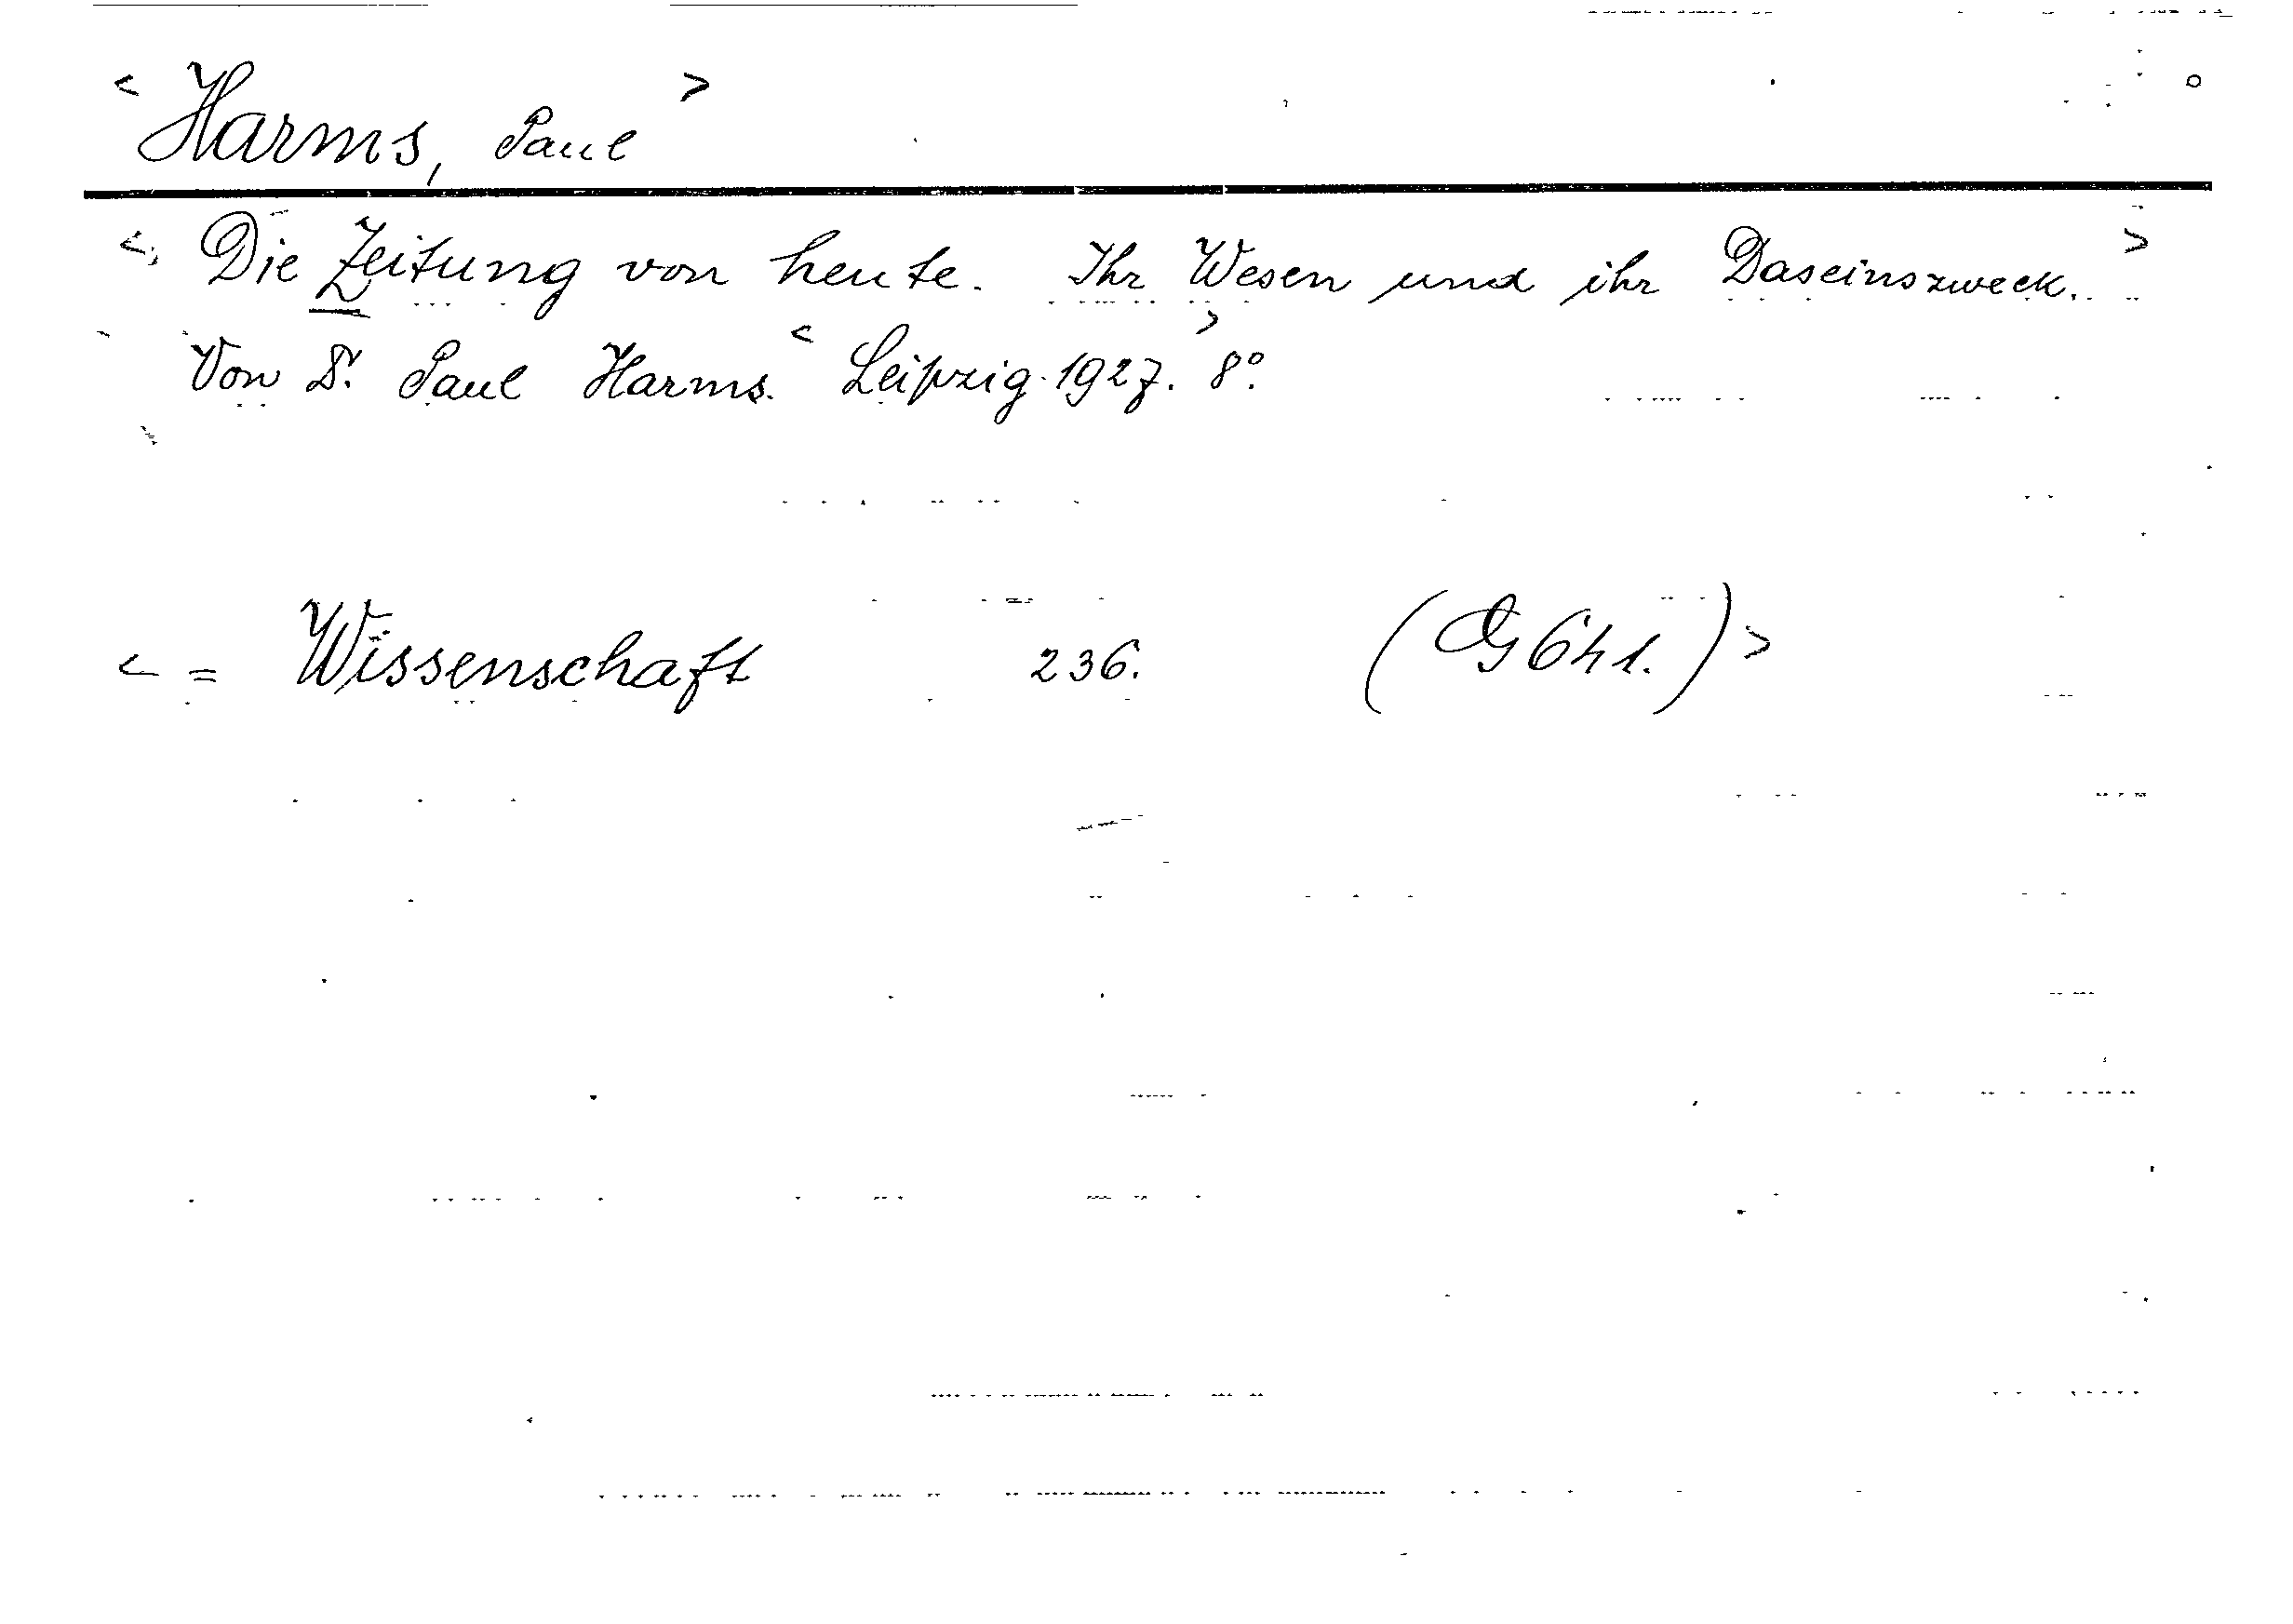 < Harms, Paul >
< Die Zeitung von heute. Ihr Wesen und ihr Daseinszweck. >
Von Dr. Paul Harms. < Leipzig 1927. > 8°.
< = Wissenschaft 236. (G 6h 1.) >